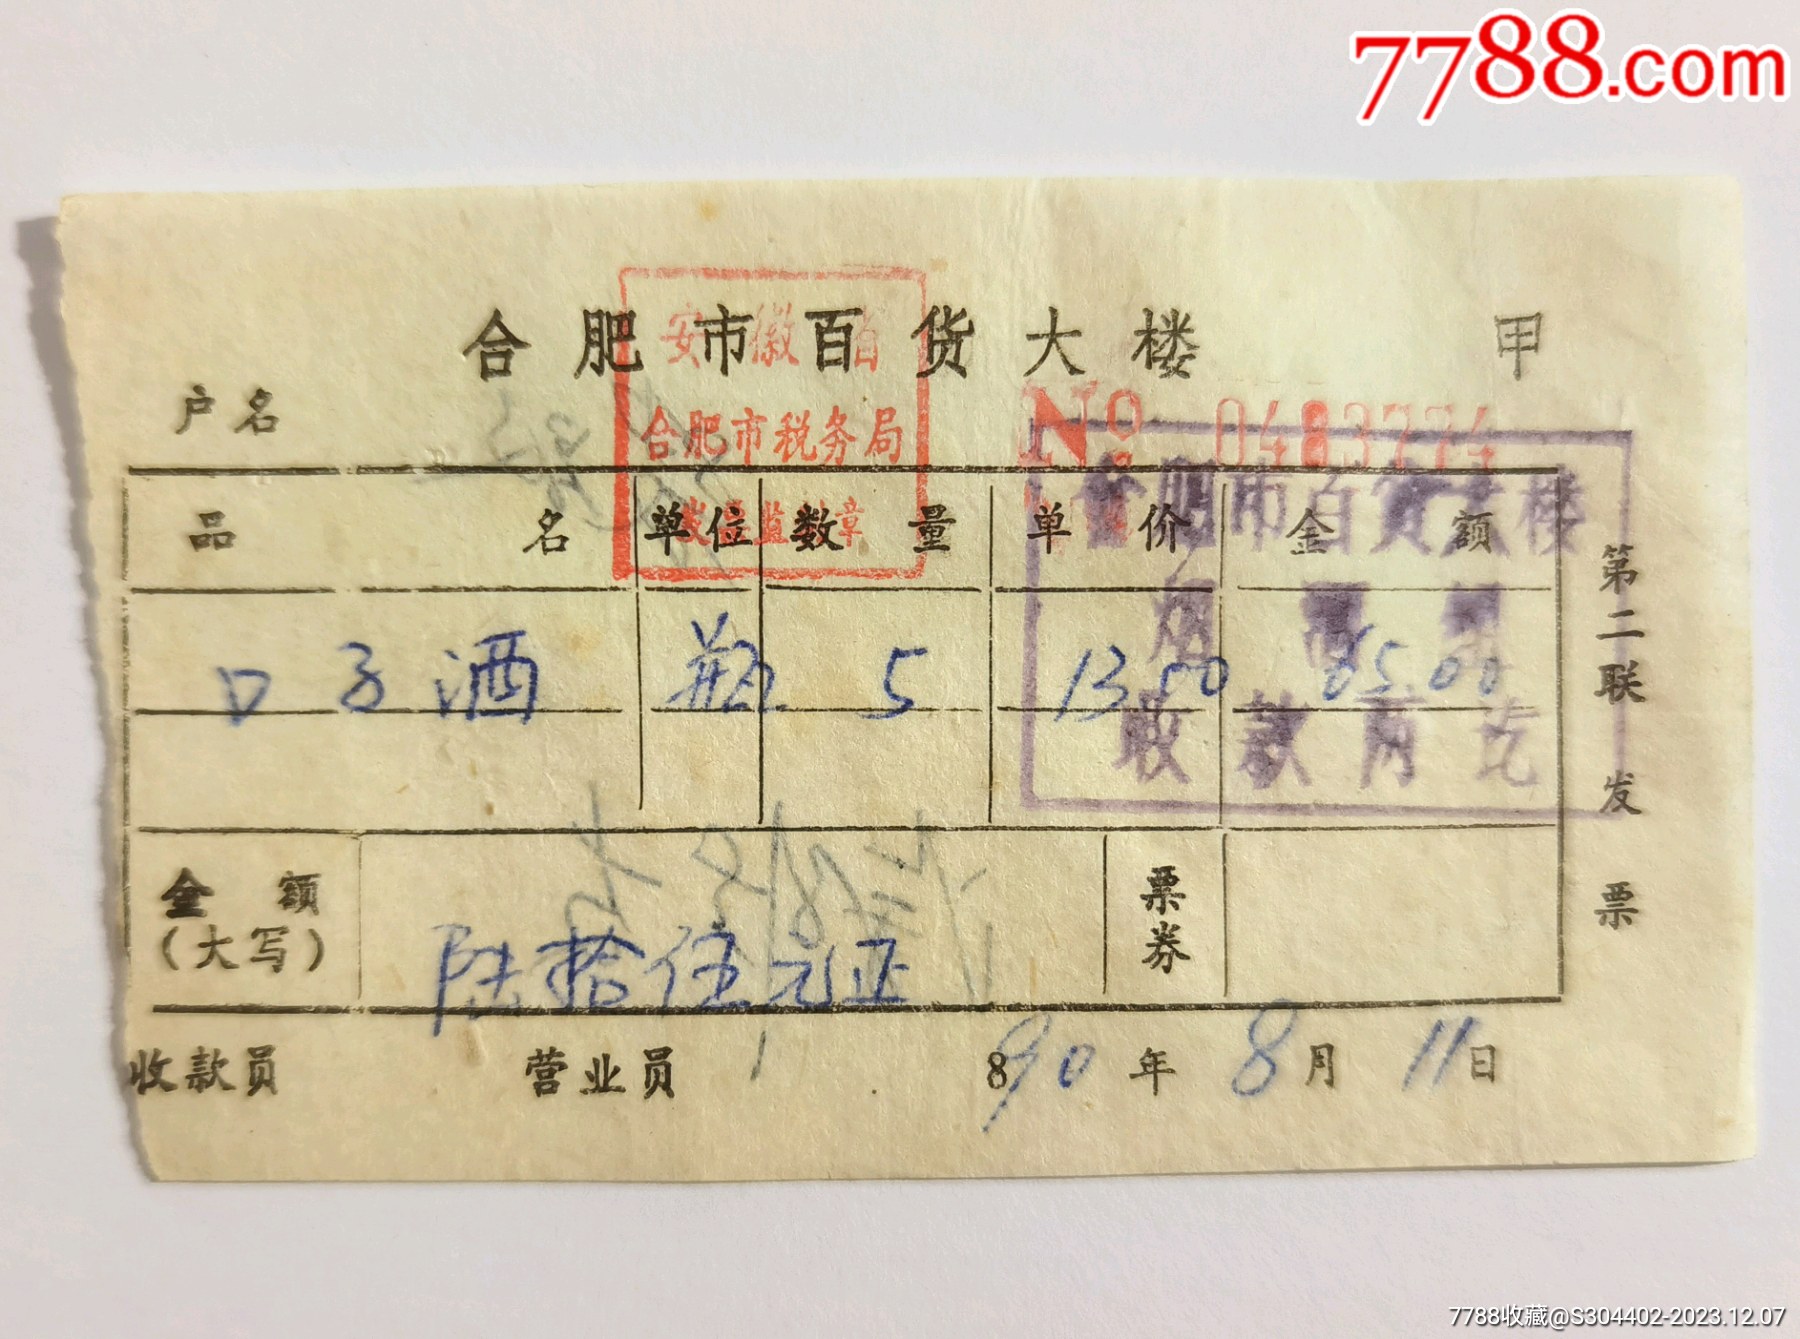 7788.com
合肥市百货大楼 甲
安徽省
合肥市税务局
户名
No 0483774
合肥市百货大楼
品名 单位 数量 单价 金额
口子酒 瓶 5 13.00 65.00
收款两讫
第二联 发票
金额(大写) 陆拾伍元正 票券
收款员 营业员 890年8月11日
7788收藏@S304402-2023.12.07